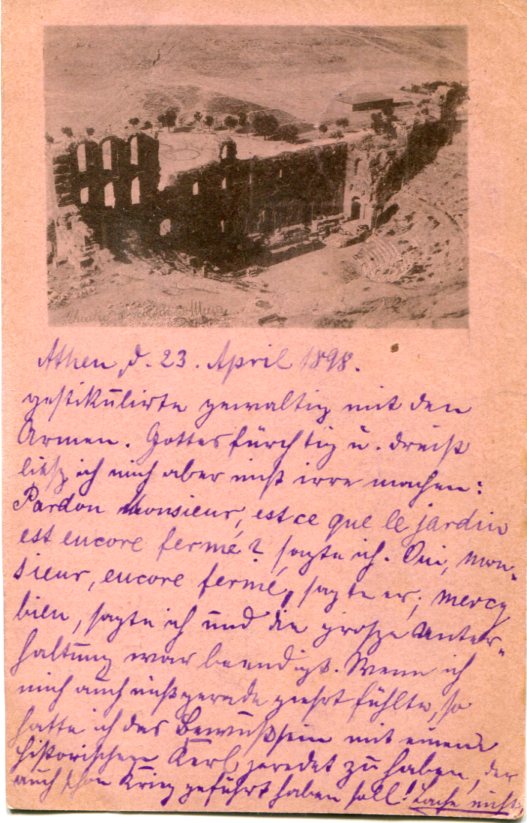 Athen, d. 23. April 1898.
gestikulirte gewaltig mit den
Armen. Gottesfürchtig u. dreist
ließ ich mich aber nicht irre machen:
Pardon Monsieur, est ce que le jardin
est encore fermé? sagte ich. Oui, mon-
sieur, encore fermé, sagte er; mercy
bien, sagte ich und die große Unter-
haltung war beendigt. Wenn ich
mich auch nicht gerade geehrt fühlte, so
hatte ich das Bewußtsein mit einem
historischen Kerl geredet zu haben, der
auch schon Krieg geführt haben soll! Lache nicht,